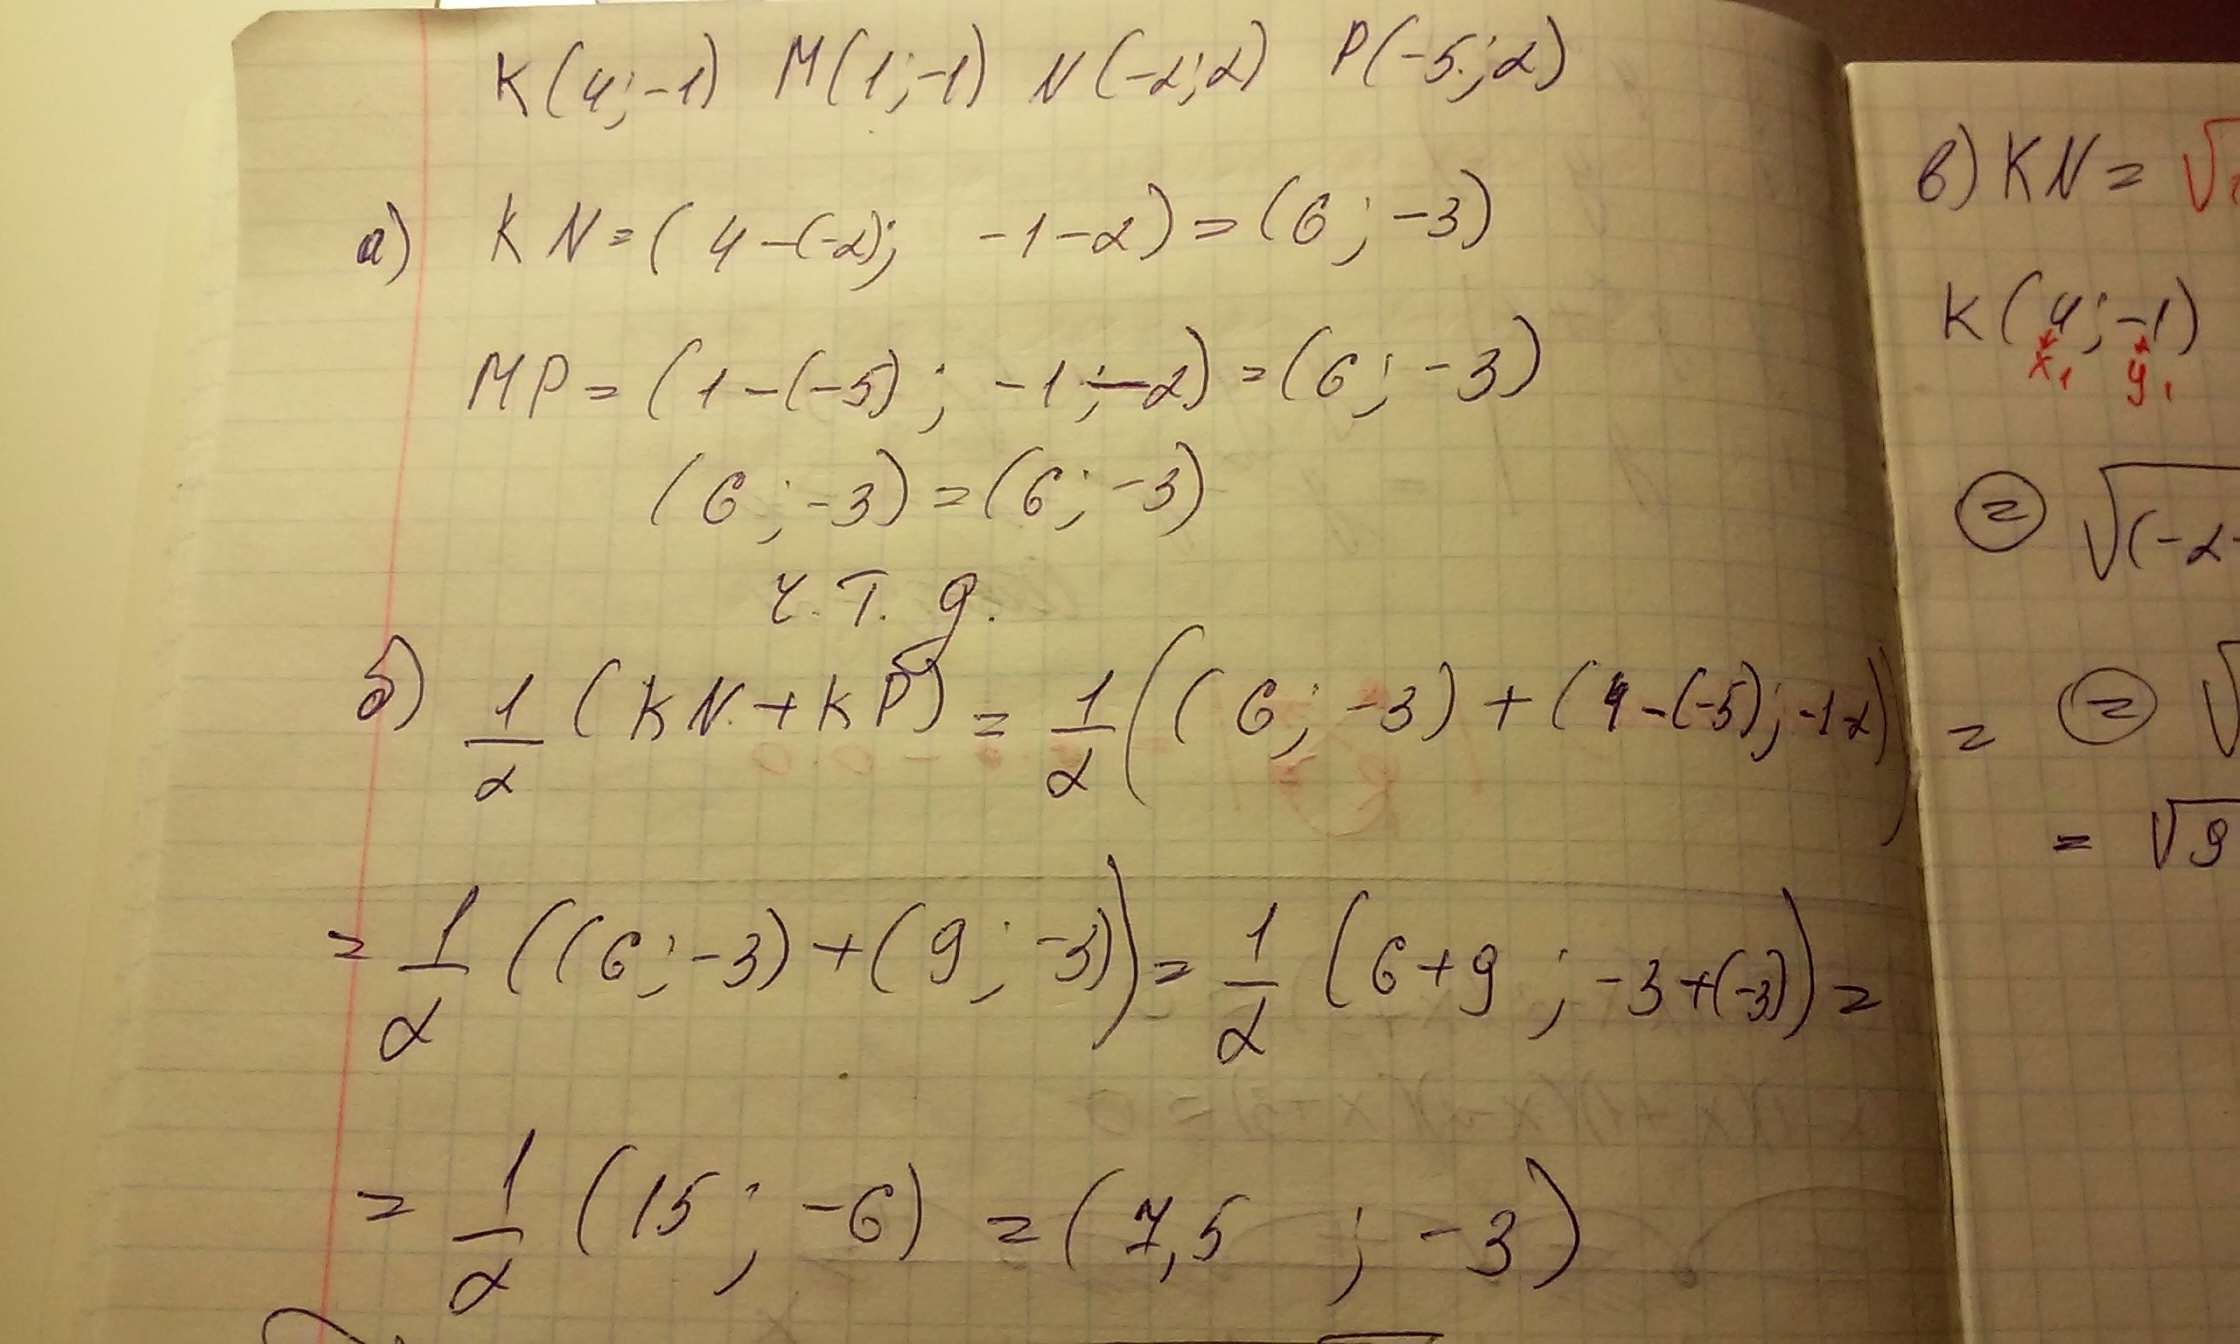 K(4;-1) M(1;-1) N(-2;2) P(-5;2)
а) KN=(4-(-2); -1-2)=(6;-3)
MP=(1-(-5); -1-2)=(6;-3)
(6;-3)=(6;-3)
ч.т.д.
б) 1/2 (KN+KP)=1/2((6;-3)+(4-(-5);-1-2))=
=1/2((6;-3)+(9;-3))=1/2(6+9;-3+(-3))=
=1/2(15;-6)=(7,5;-3)
в) KN=√
K(4;-1)
x₁ y₁
= √(-2-
= √
= √9